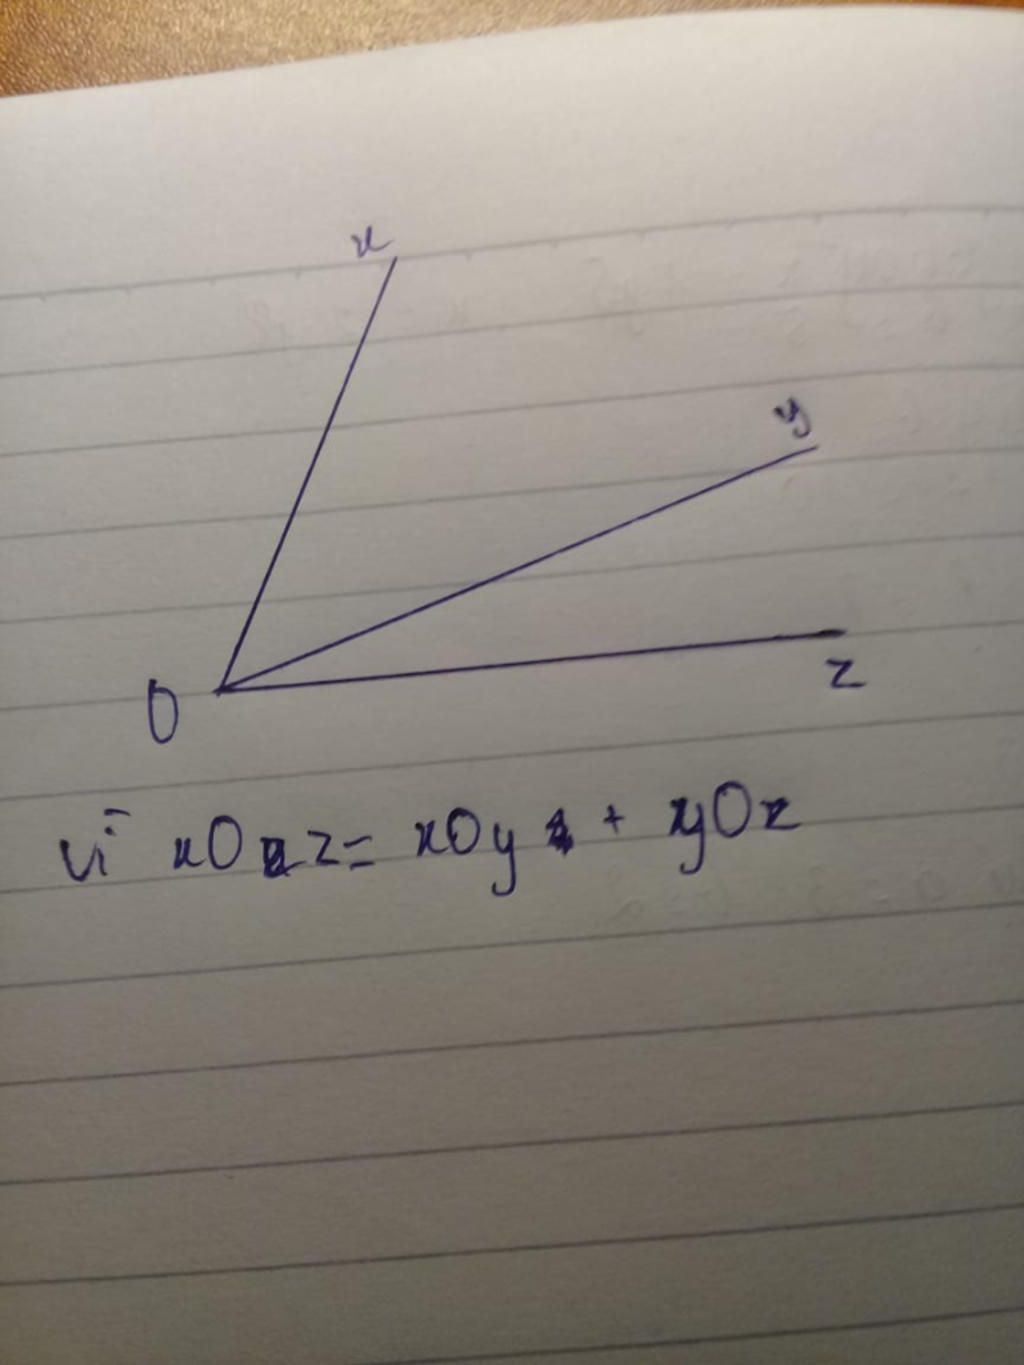 x
y
O
z
Vì xOz = xOy + yOz